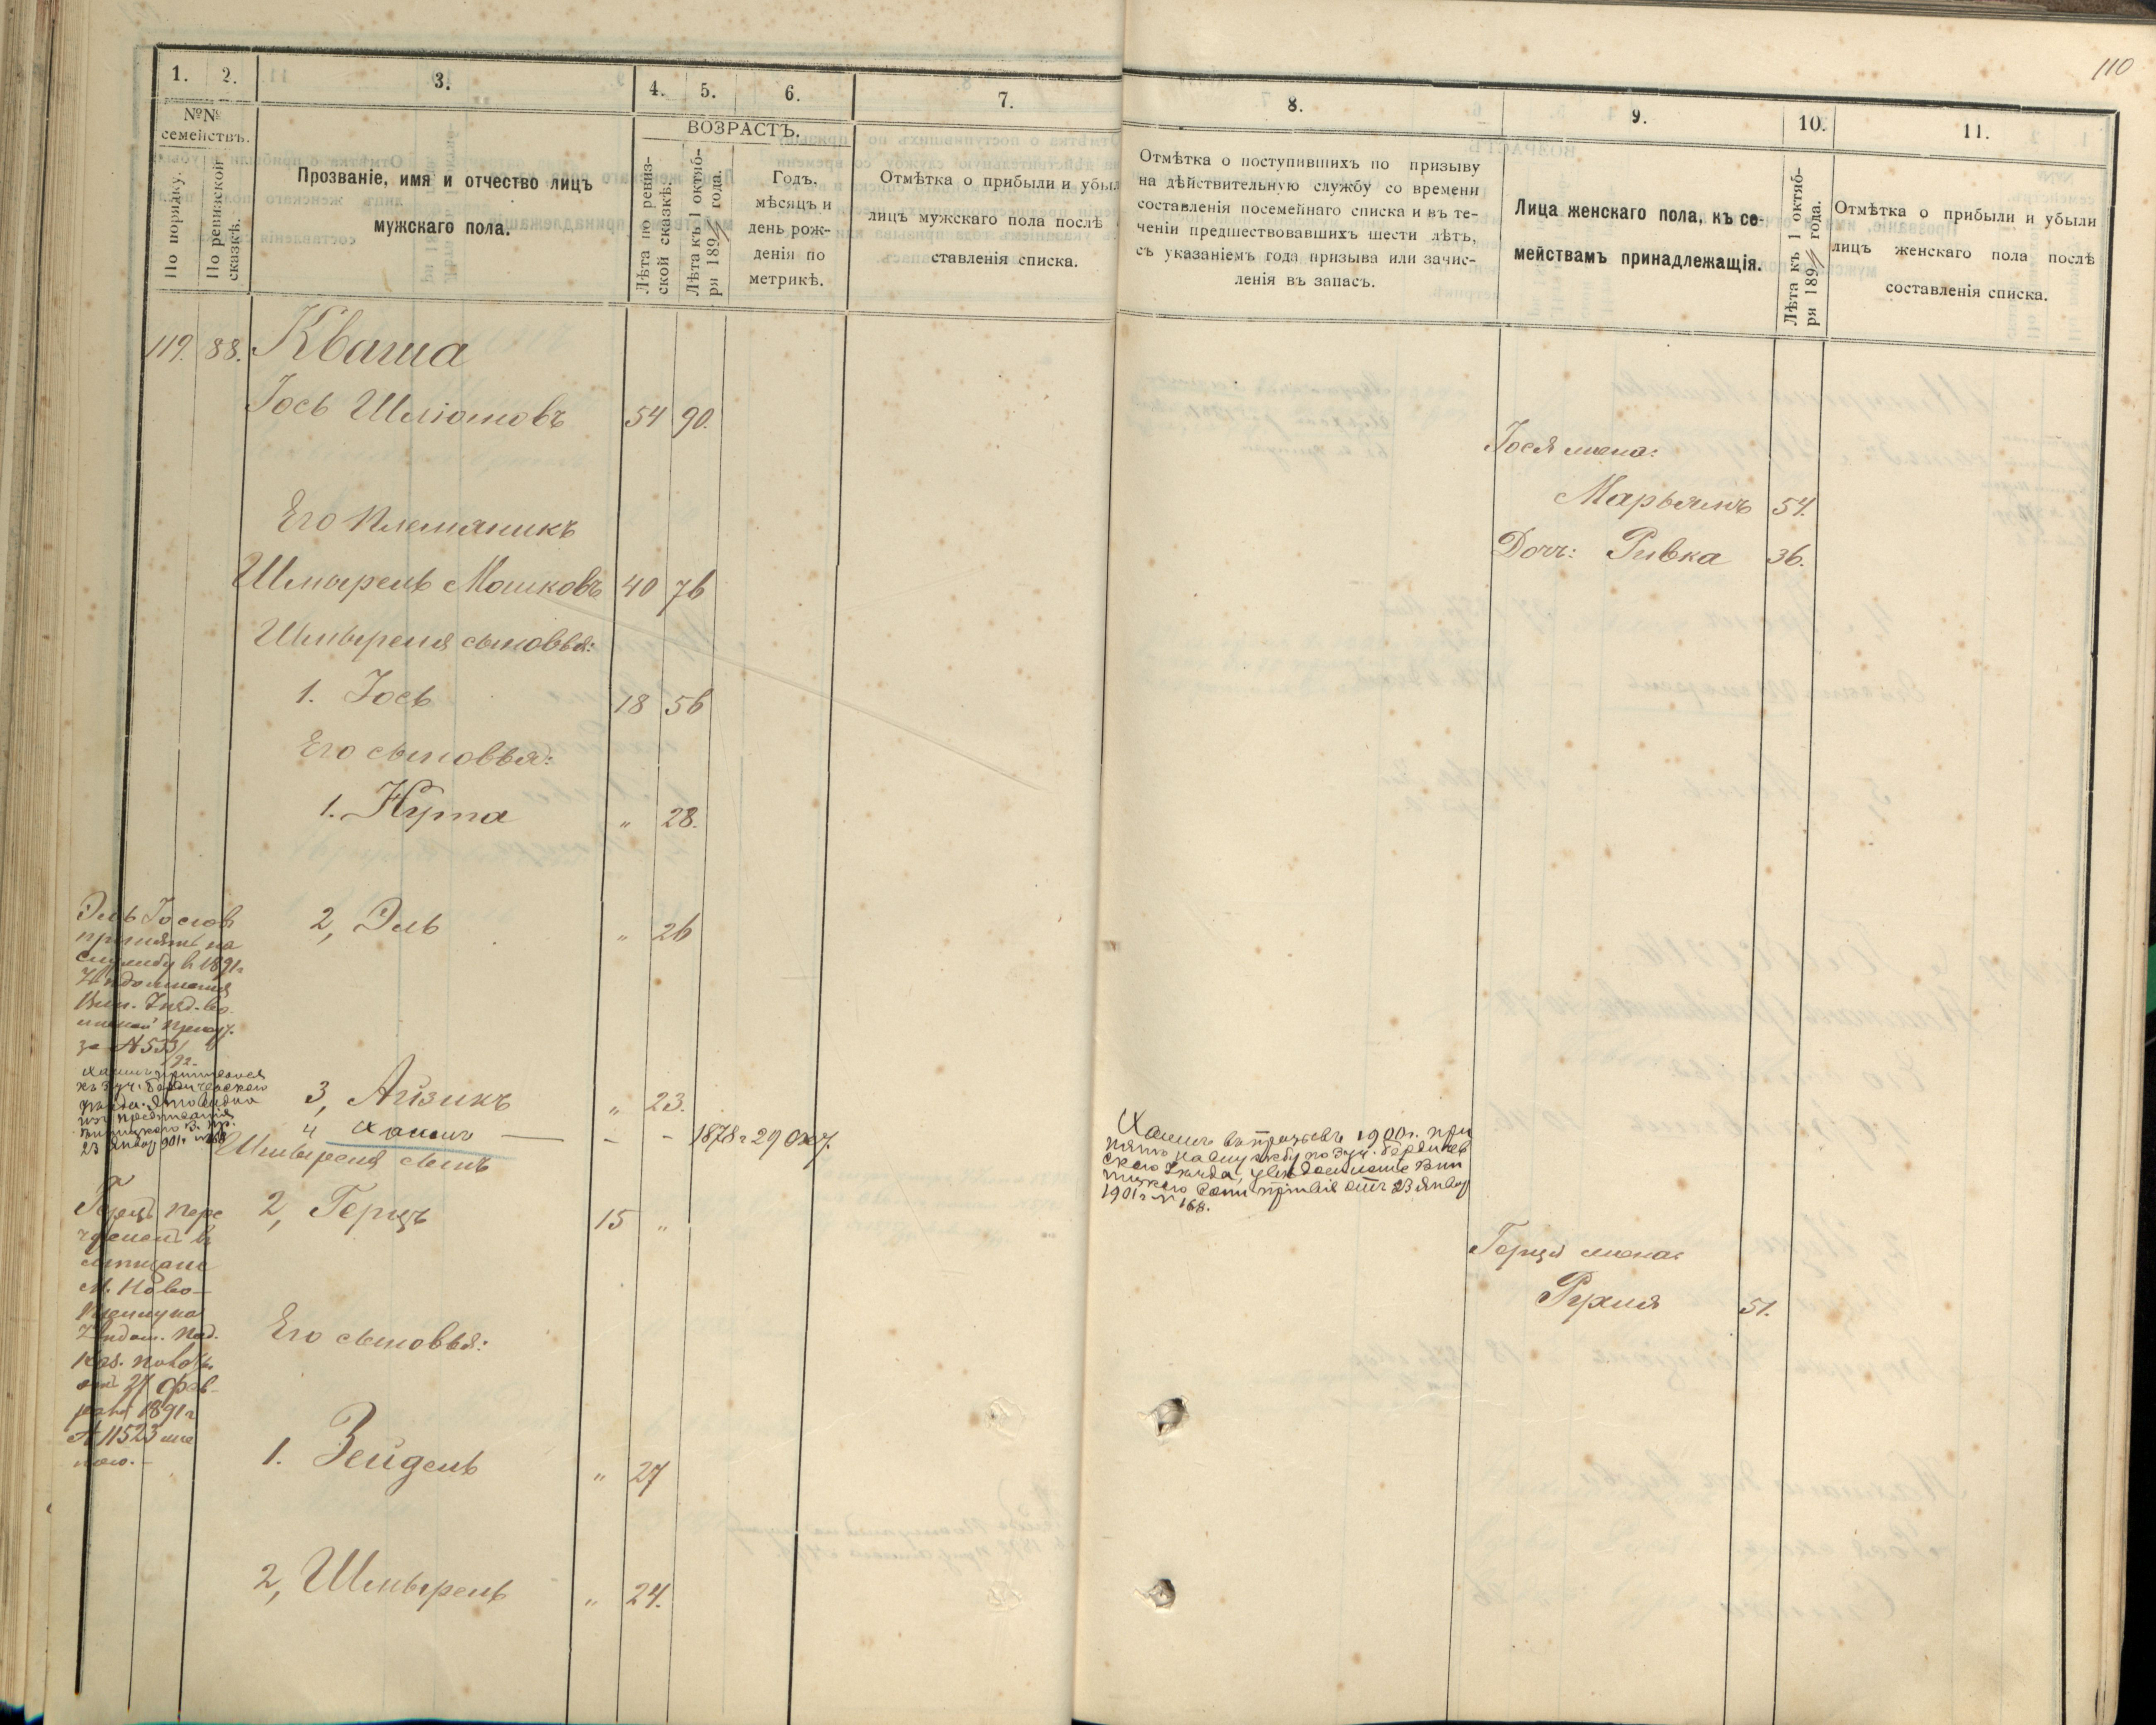 110
1. 2. 3. 4. 5. 6. 7. 8. 9. 10. 11.
№№ семействъ.
По порядку.
По ревизской сказкѣ.
Прозваніе, имя и отчество лицъ
мужскаго пола.
ВОЗРАСТЪ.
Лѣта по ревиз-
ской сказкѣ.
Лѣта къ 1 октяб-
ря 189 года.
Годъ,
мѣсяцъ и
день рож-
денія по
метрикѣ.
Отмѣтка о прибыли и убыл
лицъ мужскаго пола послѣ
ставленія списка.
Отмѣтка о поступившихъ по призыву
на дѣйствительную службу со времени
составленія посемейнаго списка и въ те-
ченіи предшествовавшихъ шести лѣтъ,
съ указаніемъ года призыва или зачис-
ленія въ запасъ.
Лица женскаго пола, къ се-
мействамъ принадлежащія.
Лѣта къ 1 октяб-
ря 189 года.
Отмѣтка о прибыли и убыли
лицъ женскаго пола послѣ
составленія списка.
119. 88. Кваша
Іось Шліомовъ 54 90.
Іося жена:
Марьямъ 54.
Его племяникъ
Дочь: Ривка 36.
Шмырель Мошковъ 40 76
Шмыреля сыновья:
1. Іось 18 56
Его сыновья:
1. Нута " 28.
2, Эль " 26
Эль Іосіов
принятъ на
службу в 1891 г
за № 533
3, Айзикъ " 23.
4 Хаимъ — - - 1878 г 29 Окт.
Хаимъ въ призывъ 1900 г. при
нятъ на службу по 3 уч. Бердичев
скаго Уѣзда, увѣдомленіе Вин
ницкаго Воин присутствія отъ 23 Январ
1901 г № 168.
23 Январ 901 г № 168
Шмыреля сынъ
2, Герцъ 15 "
Герця жена:
Рухля 51.
Герцъ пере
численъ въ
мѣщане
м. Ново-
27 фев-
раля 1891 г
№ 11523
Его сыновья:
1. Зейдель " 27
2, Шмырель " 24.